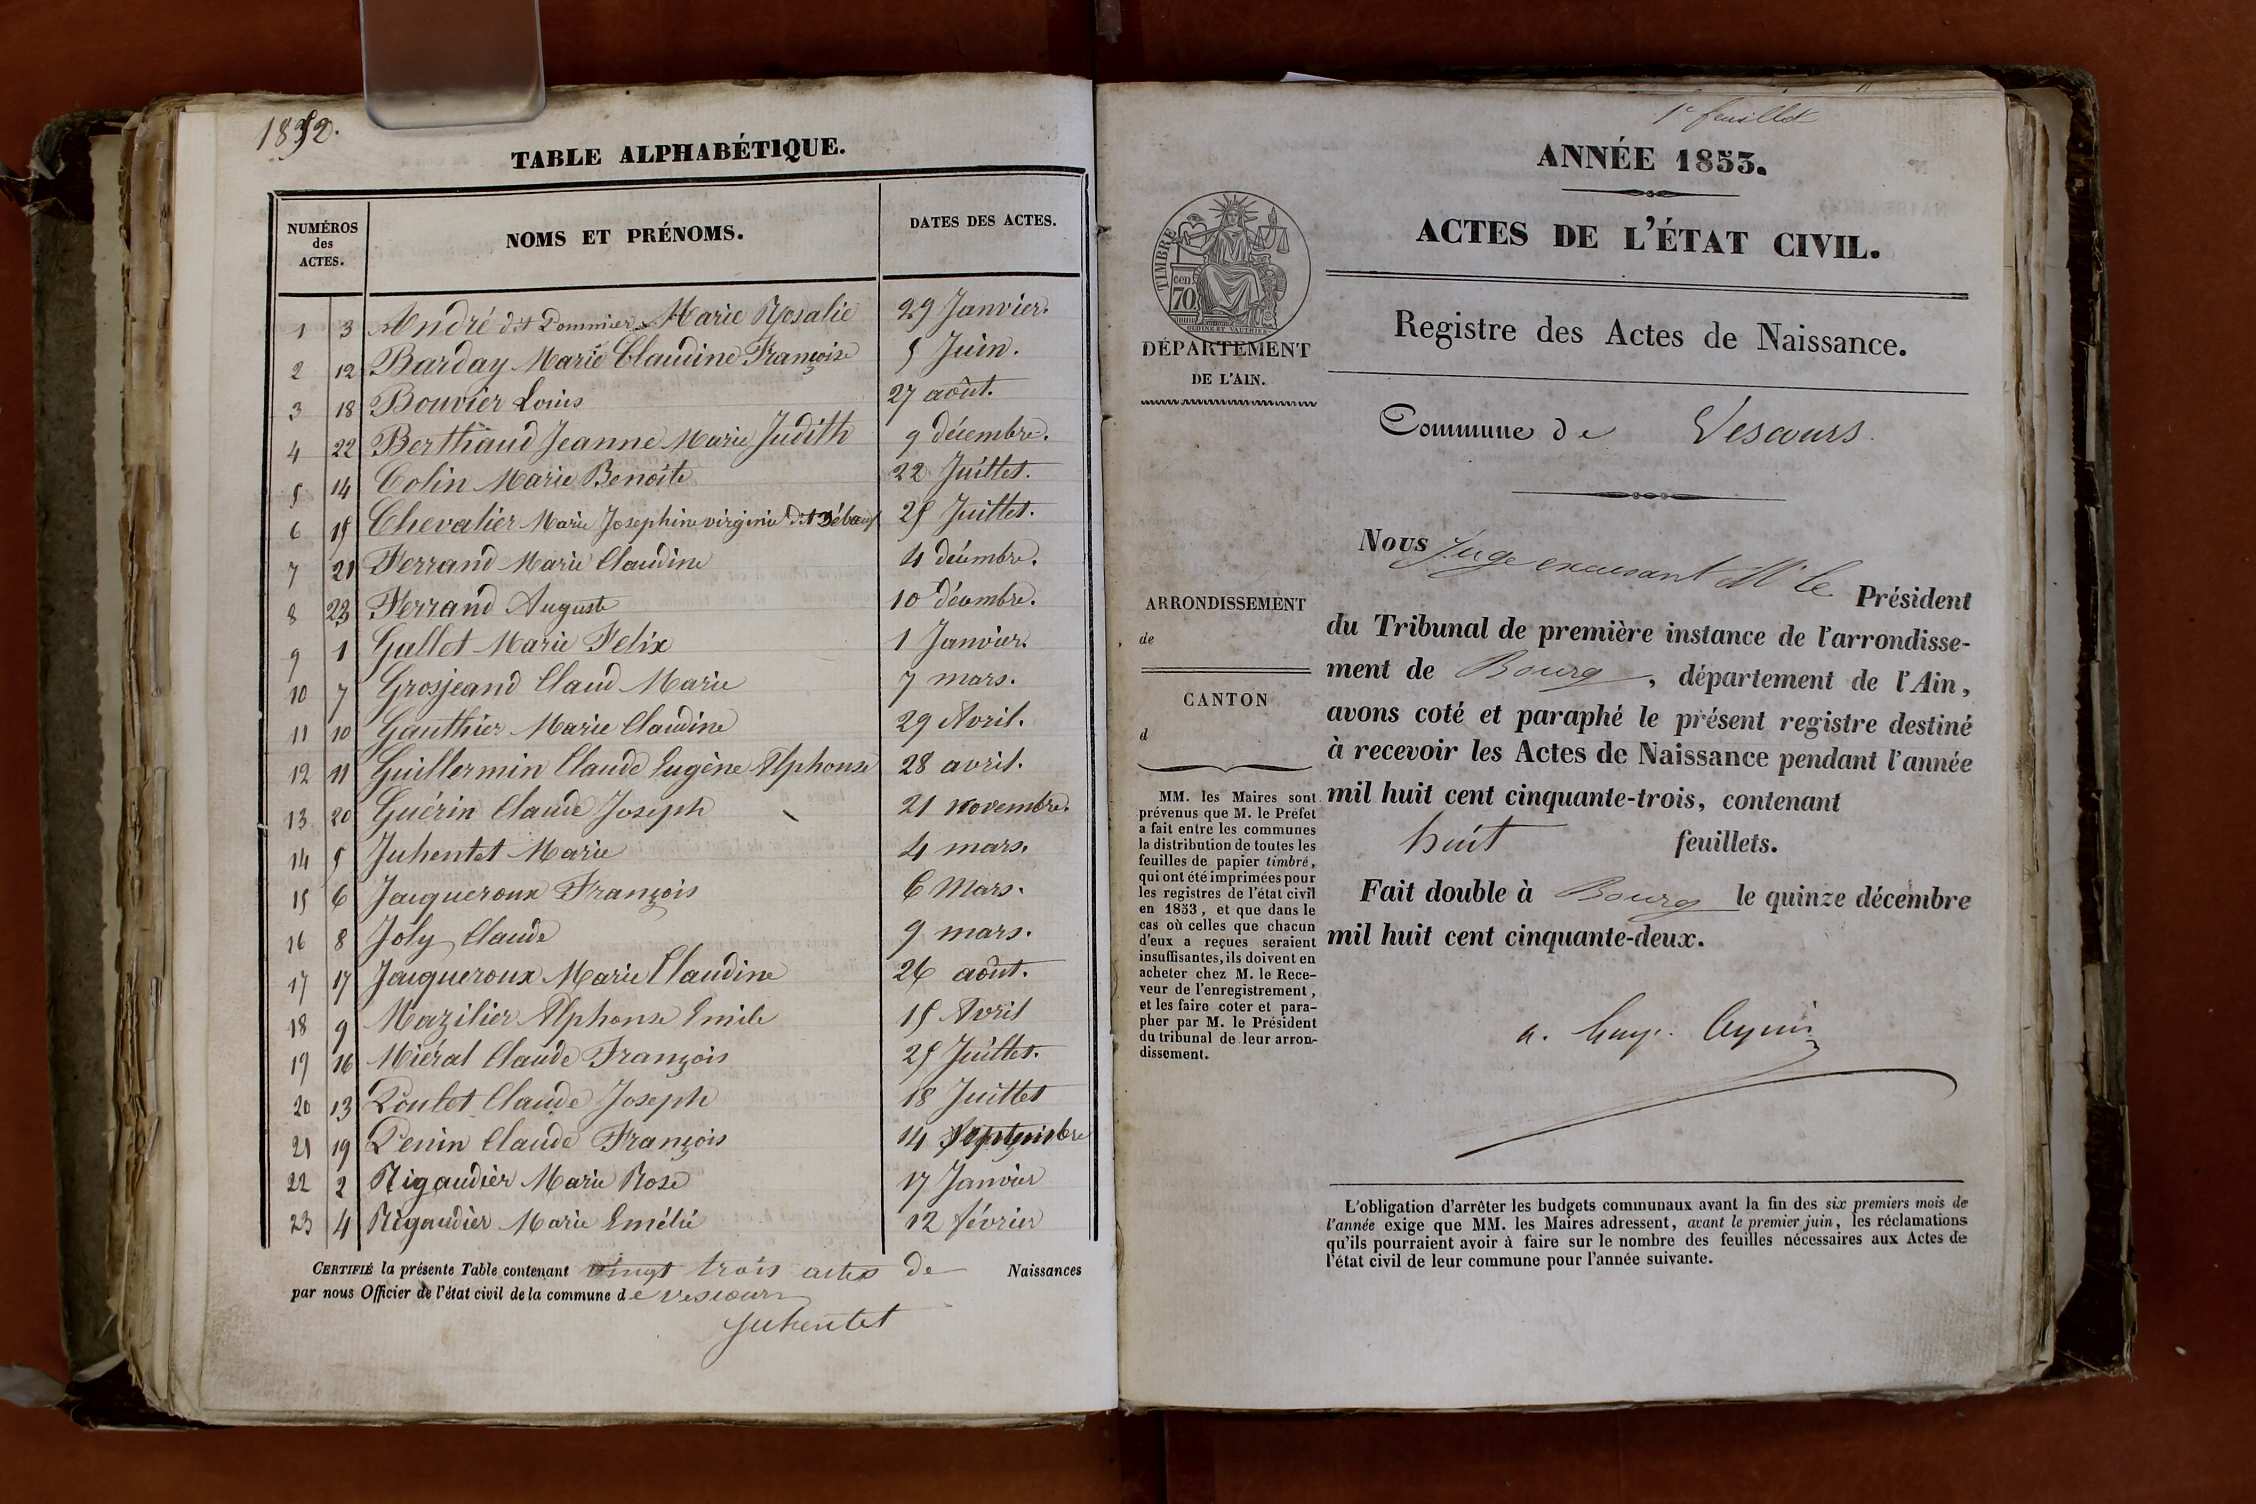 1852.
TABLE ALPHABÉTIQUE.
NUMÉROS des ACTES. NOMS ET PRÉNOMS. DATES DES ACTES.
1 3 André dit Pommier Marie Rosalie 29 Janvier.
2 12 Barday Marie Claudine Françoise 5 Juin.
3 18 Bouvier Louis 27 août.
4 22 Berthaud Jeanne Marie Judith 9 décembre.
5 14 Colin Marie Benoîte 22 Juillet.
6 15 Chevalier Marie Josephine virginie dit 25 Juillet.
7 21 Ferrand Marie Claudine 4 décembre.
8 23 Ferrand Auguste 10 décembre.
9 1 Gallet Marie Felix 1 Janvier.
10 7 Grosjeand Claud Marie 7 mars.
11 10 Gauthier Marie Claudine 29 Avril.
12 11 Guillermin Claude Eugène Alphonse 28 avril.
13 20 Guérin Claude Joseph 21 novembre.
14 5 Juhentet Marie 4 mars.
15 6 Jacqueroux François 6 Mars.
16 8 Joly Claude 9 mars.
17 17 Jacqueroux Marie Claudine 26 août.
18 9 Mazilier Alphonse Emile 15 Avril
19 16 Miéral Claude François 25 Juillet.
20 13 Poulet Claude Joseph 18 Juillet
21 19 Penin Claude François 14 Septembre
22 2 Rigaudier Marie Rose 17 Janvier
23 4 Rigaudier Marie Emélie 12 février
CERTIFIÉ la présente Table contenant vingt trois actes de Naissances
par nous Officier de l'état civil de la commune de Vescours
Juhentet
1er feuillet
ANNÉE 1853.
ACTES DE L'ÉTAT CIVIL.
Registre des Actes de Naissance.
TIMBRE
70 cen
DÉPARTEMENT
DE L'AIN.
Commune de Vescours
ARRONDISSEMENT
de
CANTON
d
MM. les Maires sont
prévenus que M. le Préfet
a fait entre les communes
la distribution de toutes les
feuilles de papier timbré,
qui ont été imprimées pour
les registres de l'état civil
en 1853, et que dans le
cas où celles que chacun
d'eux a reçues seraient
insuffisantes, ils doivent en
acheter chez M. le Rece-
veur de l'enregistrement,
et les faire coter et para-
pher par M. le Président
du tribunal de leur arron-
dissement.
Nous Juge excusant Mr le Président
du Tribunal de première instance de l'arrondisse-
ment de Bourg, département de l'Ain,
avons coté et paraphé le présent registre destiné
à recevoir les Actes de Naissance pendant l'année
mil huit cent cinquante-trois, contenant
huit feuillets.
Fait double à Bourg le quinze décembre
mil huit cent cinquante-deux.
L'obligation d'arrêter les budgets communaux avant la fin des six premiers mois de
l'année exige que MM. les Maires adressent, avant le premier juin, les réclamations
qu'ils pourraient avoir à faire sur le nombre des feuilles nécessaires aux Actes de
l'état civil de leur commune pour l'année suivante.